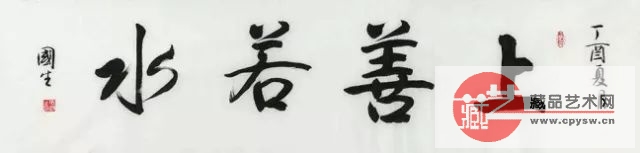 丁酉夏
上善若水
國生
藏品艺术网
www.cpysw.cn
藏